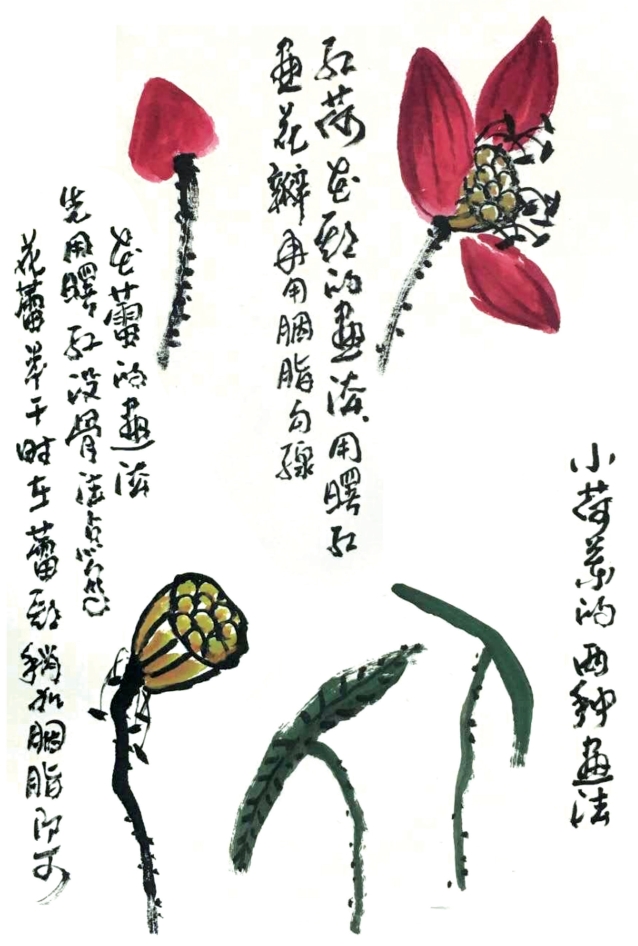 小荷葉的两种畫法
红荷花頭的畫法用曙红
畫花瓣再用胭脂勾線
花蕾的畫法
先用曙红没骨法点
花蕾半干时在蕾頭稍加胭脂即可